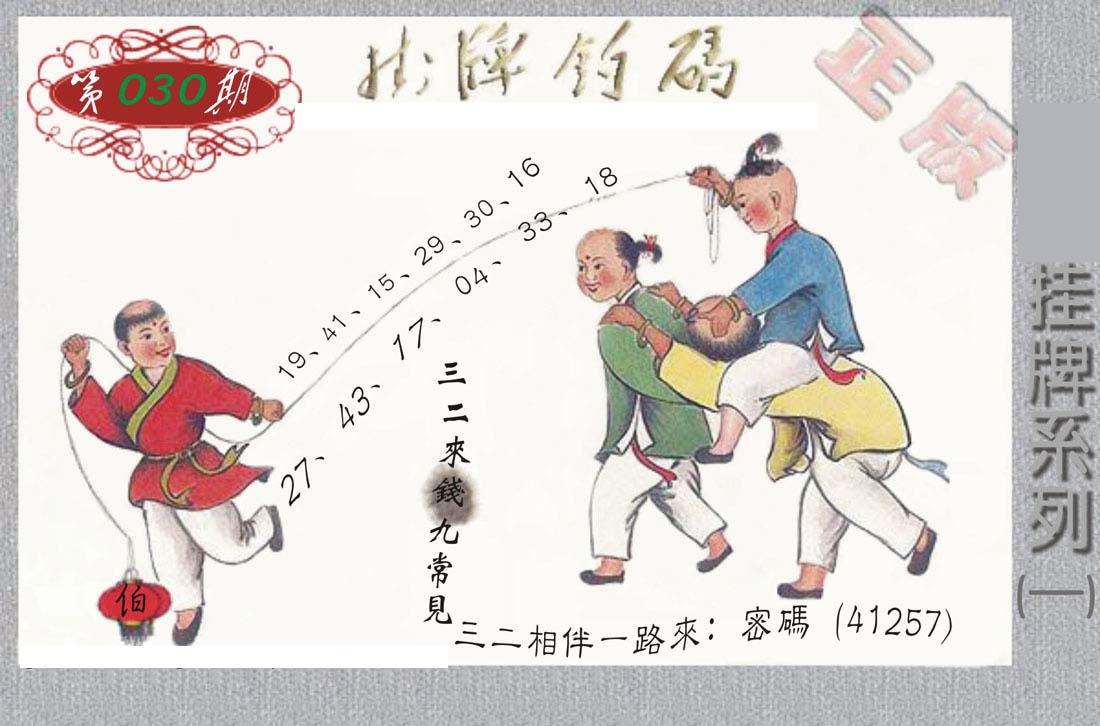 第030期
掛牌釣碼
正版
19、41、15、29、30、16
27、43、17、04、33、18
三二來錢九常見
伯
三二相伴一路來：密碼（41257）
挂牌系列(一)